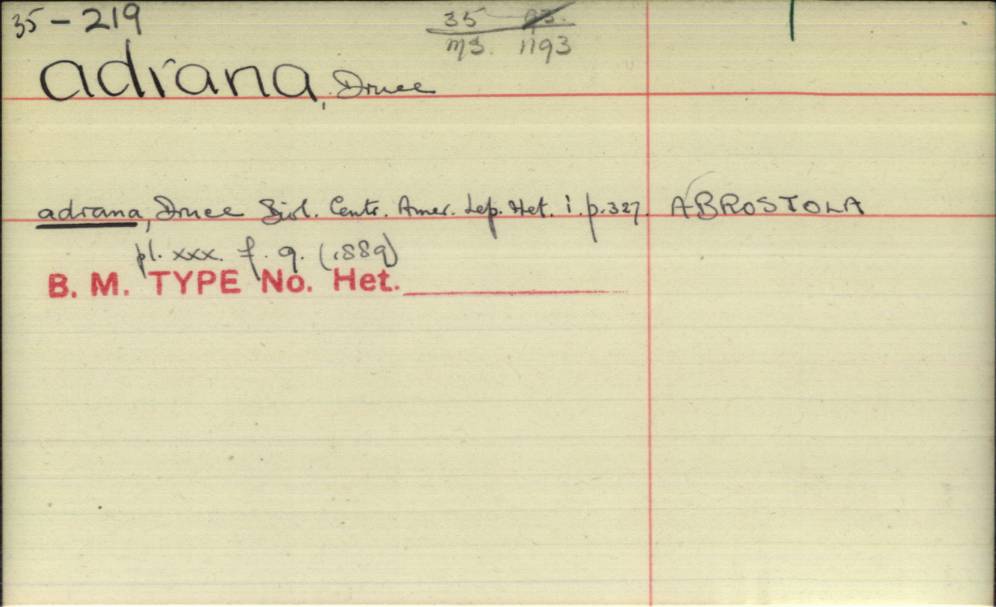 35-219
35 93.
MS. 1193
adrana, Druce
adrana, Druce Biol. Centr. Amer. Lep. Het. i. p.327. ABROSTOLA
pl. xxx. f. 9. (1889)
B. M. TYPE No. Het.